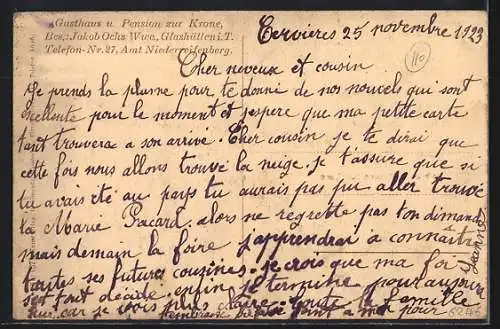 Gasthaus u. Pension zur Krone,
Bes.: Jakob Ochs Wwe., Glashütten i. T.
Telefon-Nr. 27, Amt Niederreifenberg.
Cervières 25 novembre 1923
110
Cher neveux et cousin
Je prends la plume pour te donné de nos nouvels qui sont
excellente pour le moment et j'espere que ma petite carte
tant trouvera a son arrivé. Cher cousin je te dirai que
cette fois nous allons trouvé la neige. je t'assure que si
tu avais été au pays tu aurais pas pu aller trouvé
la Marie Pacard. alors ne regrette pas ton dimanche
mais demain la foire j'apprendrai a connaître
toutes ses futures couzines. je crois que ma foi
s'est tout décidé. enfin je termine pour aujourd
hui, car je vois plus claire. toute la famille